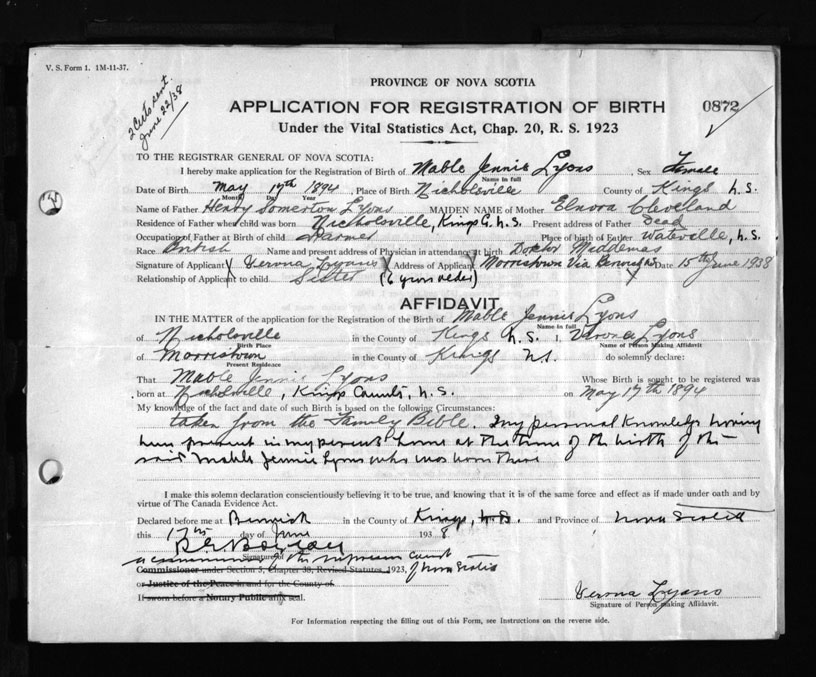 V. S. Form 1. 1M-11-37.
2 Certs sent
June 22/38
PROVINCE OF NOVA SCOTIA
APPLICATION FOR REGISTRATION OF BIRTH 0872
Under the Vital Statistics Act, Chap. 20, R. S. 1923
TO THE REGISTRAR GENERAL OF NOVA SCOTIA:
I hereby make application for the Registration of Birth of Mable Jennie Lyons, Sex Female
Name in full
Date of Birth May 17th 1894, Place of Birth Nicholsville County of Kings N.S.
Month Day Year
Name of Father Henry Somerton Lyons MAIDEN NAME of Mother Elnora Cleveland
Residence of Father when child was born Nicholsville, Kings Co. N.S. Present address of Father Dead
Occupation of Father at Birth of child Farmer Place of birth of Father Waterville, N.S.
Race British Name and present address of Physician in attendance at birth Doctor Middemas
Signature of Applicant X Verona Lyons X Address of Applicant Morristown Via Berwick Date 15th June 1938
Relationship of Applicant to child Sister (6 years older)
AFFIDAVIT
IN THE MATTER of the application for the Registration of the Birth of Mable Jennie Lyons
Name in full
of Nicholsville in the County of Kings N.S. I, Verona Lyons
Birth Place Name of Person Making Affidavit
of Morristown in the County of Kings N.S. do solemnly declare:
Present Residence
That Mable Jennie Lyons Whose Birth is sought to be registered was
born at Nicholville, Kings County, N.S. on May 17th 1894
My knowledge of the fact and date of such Birth is based on the following Circumstances:
taken from the Family Bible. My personal knowledge having
been present in my parents' home at the time of the birth of the
said Mable Jennie Lyons who was born there
I make this solemn declaration conscientiously believing it to be true, and knowing that it is of the same force and effect as if made under oath and by
virtue of The Canada Evidence Act.
Declared before me at Berwick in the County of Kings, N.S. and Province of Nova Scotia
this 17th day of June 1938
Signature of
a commissioner of the supreme court
Commissioner under Section 3, Chapter 38, Revised Statutes, 1923, of Nova Scotia
or Justice of the Peace in and for the County of
If sworn before a Notary Public affix seal.
Verona Lyons
Signature of Person making Affidavit.
For Information respecting the filling out of this Form, see Instructions on the reverse side.